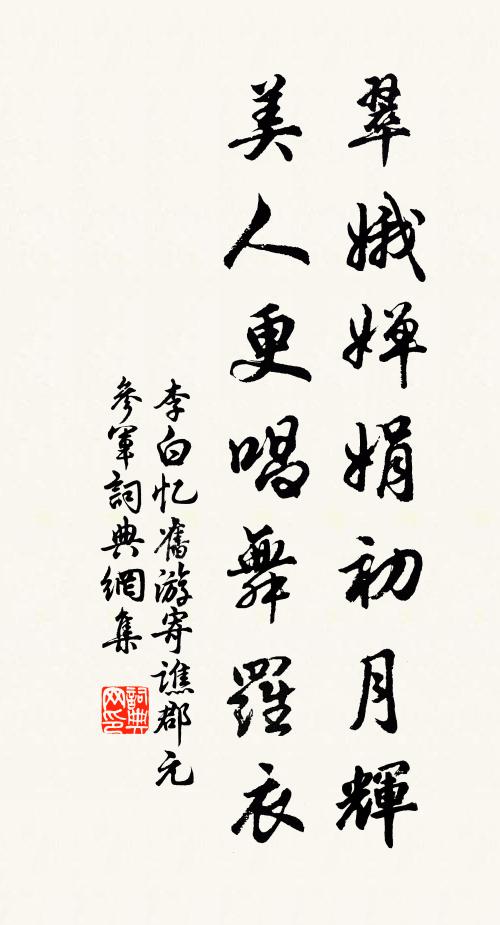 翠娥嬋娟初月輝
美人更唱舞羅衣
李白忆舊游寄譙郡元
參軍詞典網集
詞典网印